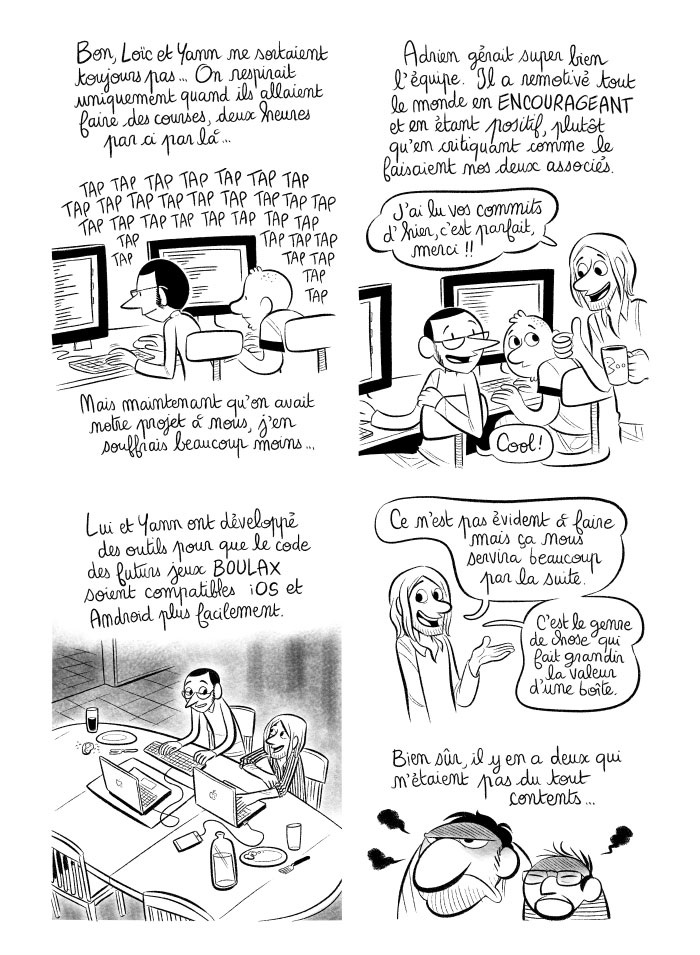 Bon, Loïc et Yann ne sortaient
toujours pas... On respirait
uniquement quand ils allaient
faire des courses, deux heures
par ci par là...
TAP TAP TAP TAP TAP TAP TAP
TAP TAP TAP TAP TAP TAP TAP TAP TAP
TAP TAP TAP TAP TAP TAP TAP TAP
TAP TAP TAP TAP
TAP TAP TAP
TAP
TAP
Mais maintenant qu'on avait
notre projet à nous, j'en
souffrais beaucoup moins...
Adrien gérait super bien
l'équipe. Il a remotivé tout
le monde en ENCOURAGEANT
et en étant positif, plutôt
qu'en critiquant comme le
faisaient nos deux associés.
J'ai lu vos commits
d'hier, c'est parfait,
merci !!
Cool !
Lui et Yann ont développé
des outils pour que le code
des futurs jeux BOULAX
soient compatibles iOS et
Android plus facilement.
Ce n'est pas évident à faire
mais ça nous
servira beaucoup
par la suite.
C'est le genre
de chose qui
fait grandir
la valeur
d'une boîte.
Bien sûr, il y en a deux qui
n'étaient pas du tout
contents...